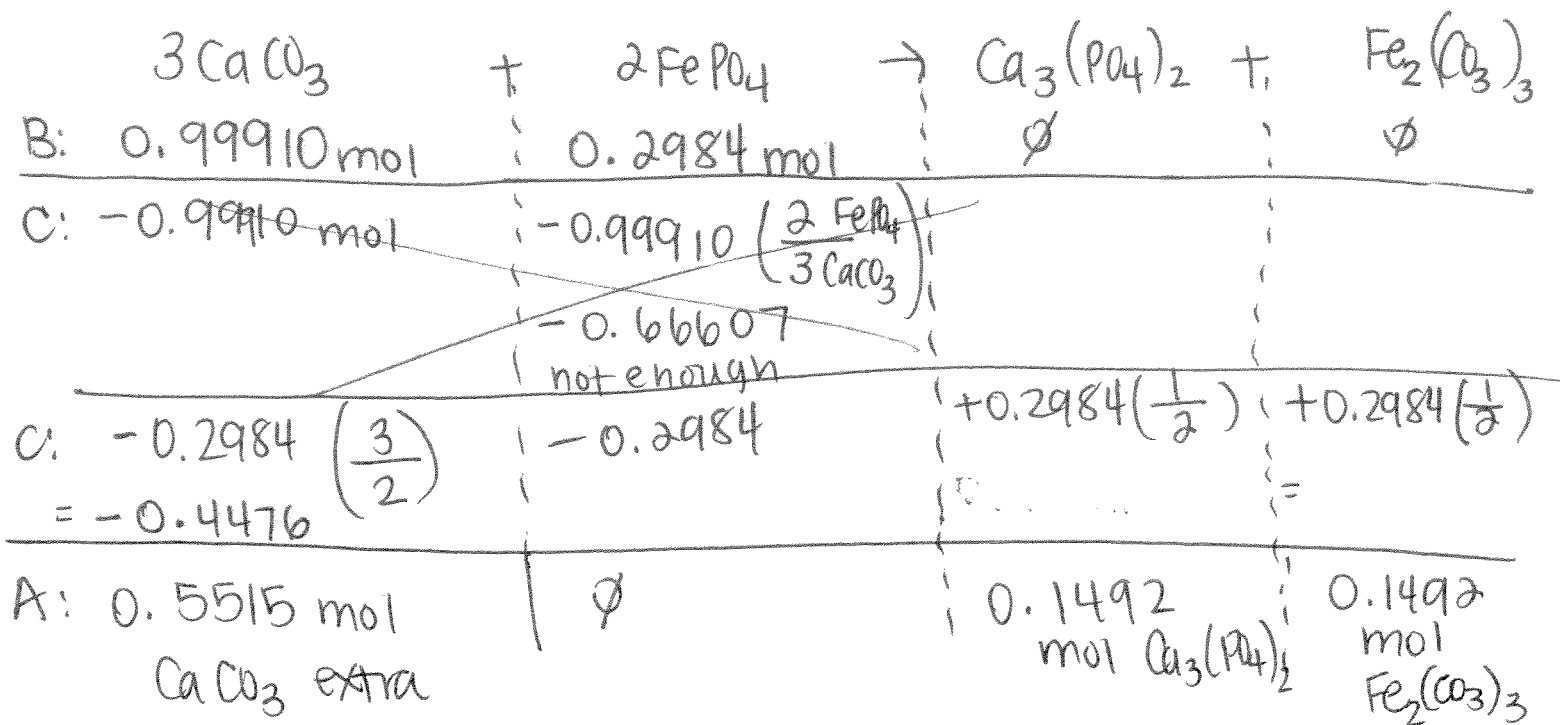 3CaCO3 + 2FePO4 → Ca3(PO4)2 + Fe2(CO3)3
B: 0.99910 mol 0.2984 mol ∅ ∅
C: -0.99910 mol -0.99910 (2 FePO4 / 3 CaCO3)
-0.66607
not enough
C: -0.2984 (3/2) -0.2984 +0.2984(1/2) +0.2984(1/2)
= -0.4476 =
A: 0.5515 mol ∅ 0.1492 0.1492
CaCO3 extra mol Ca3(PO4)2 mol
Fe2(CO3)3